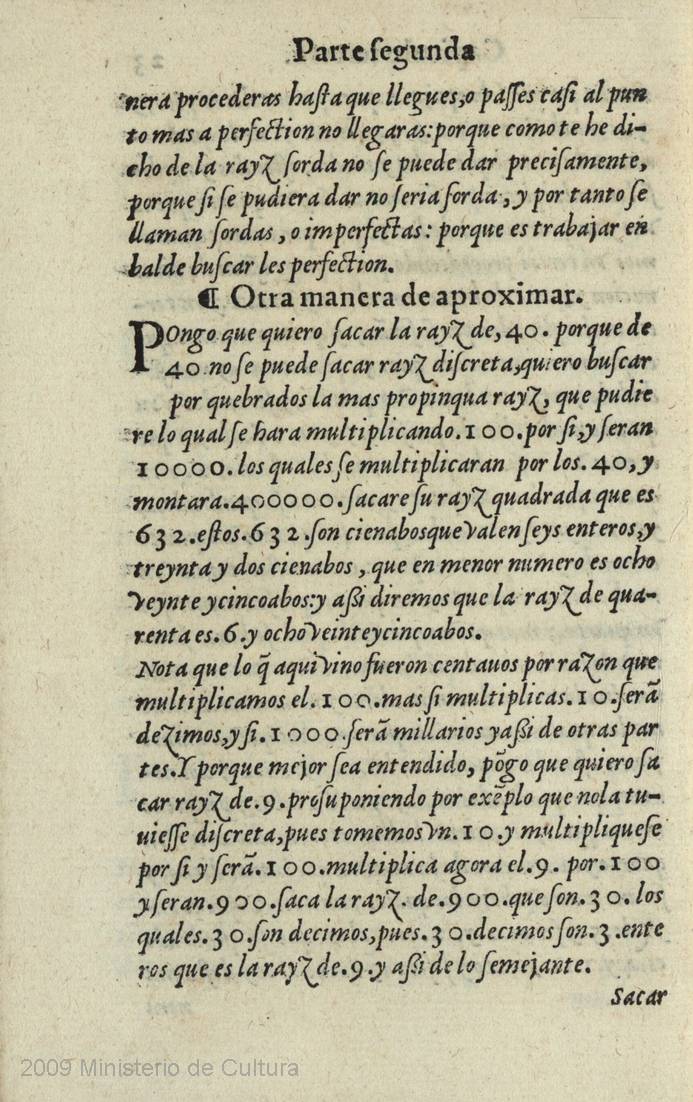 Parte ſegunda
nera procederas haſta que llegues,o paſſes caſi al pun
to mas a perfection no llegaras:porque como te he di-
cho de la rayz ſorda no ſe puede dar preciſamente,
porque ſi ſe pudiera dar no ſeria ſorda, y por tanto ſe
llaman ſordas, o imperfectas: porque es trabajar en
balde buſcar les perfection.
¶ Otra manera de aproximar.
POngo que quiero ſacar la rayz de, 40. porque de
40 no ſe puede ſacar rayz diſcreta,quiero buſcar
por quebrados la mas propinqua rayz, que pudie
re lo qual ſe hara multiplicando.100.por ſi,y ſeran
10000. los quales ſe multiplicaran por los. 40, y
montara.400000.ſacare ſu rayz quadrada que es
632.eſtos.632.ſon cienabosque valen ſeys enteros,y
treynta y dos cienabos, que en menor numero es ocho
veynte ycincoabos:y aßi diremos que la rayz de qua-
renta es.6.y ocho veinteycincoabos.
Nota que lo q̃ aqui vino fueron centauos por razon que
multiplicamos el.100.mas ſi multiplicas.10.ſerã
dezimos,y ſi.1000.ſerã millarios yaßi de otras par
tes.Y porque mejor ſea entendido, põgo que quiero ſa
car rayz de.9.proſuponiendo por exẽplo que nola tu-
uieſſe diſcreta,pues tomemos vn.10.y multipliqueſe
por ſi y ſerã.100.multiplica agora el.9. por.100
y ſeran.900.ſaca la rayz. de.900.que ſon.30. los
quales.30.ſon decimos,pues.30.decimos ſon.3.ente
ros que es la rayz de.9.y aßi de lo ſemejante.
Sacar
2009 Ministerio de Cultura